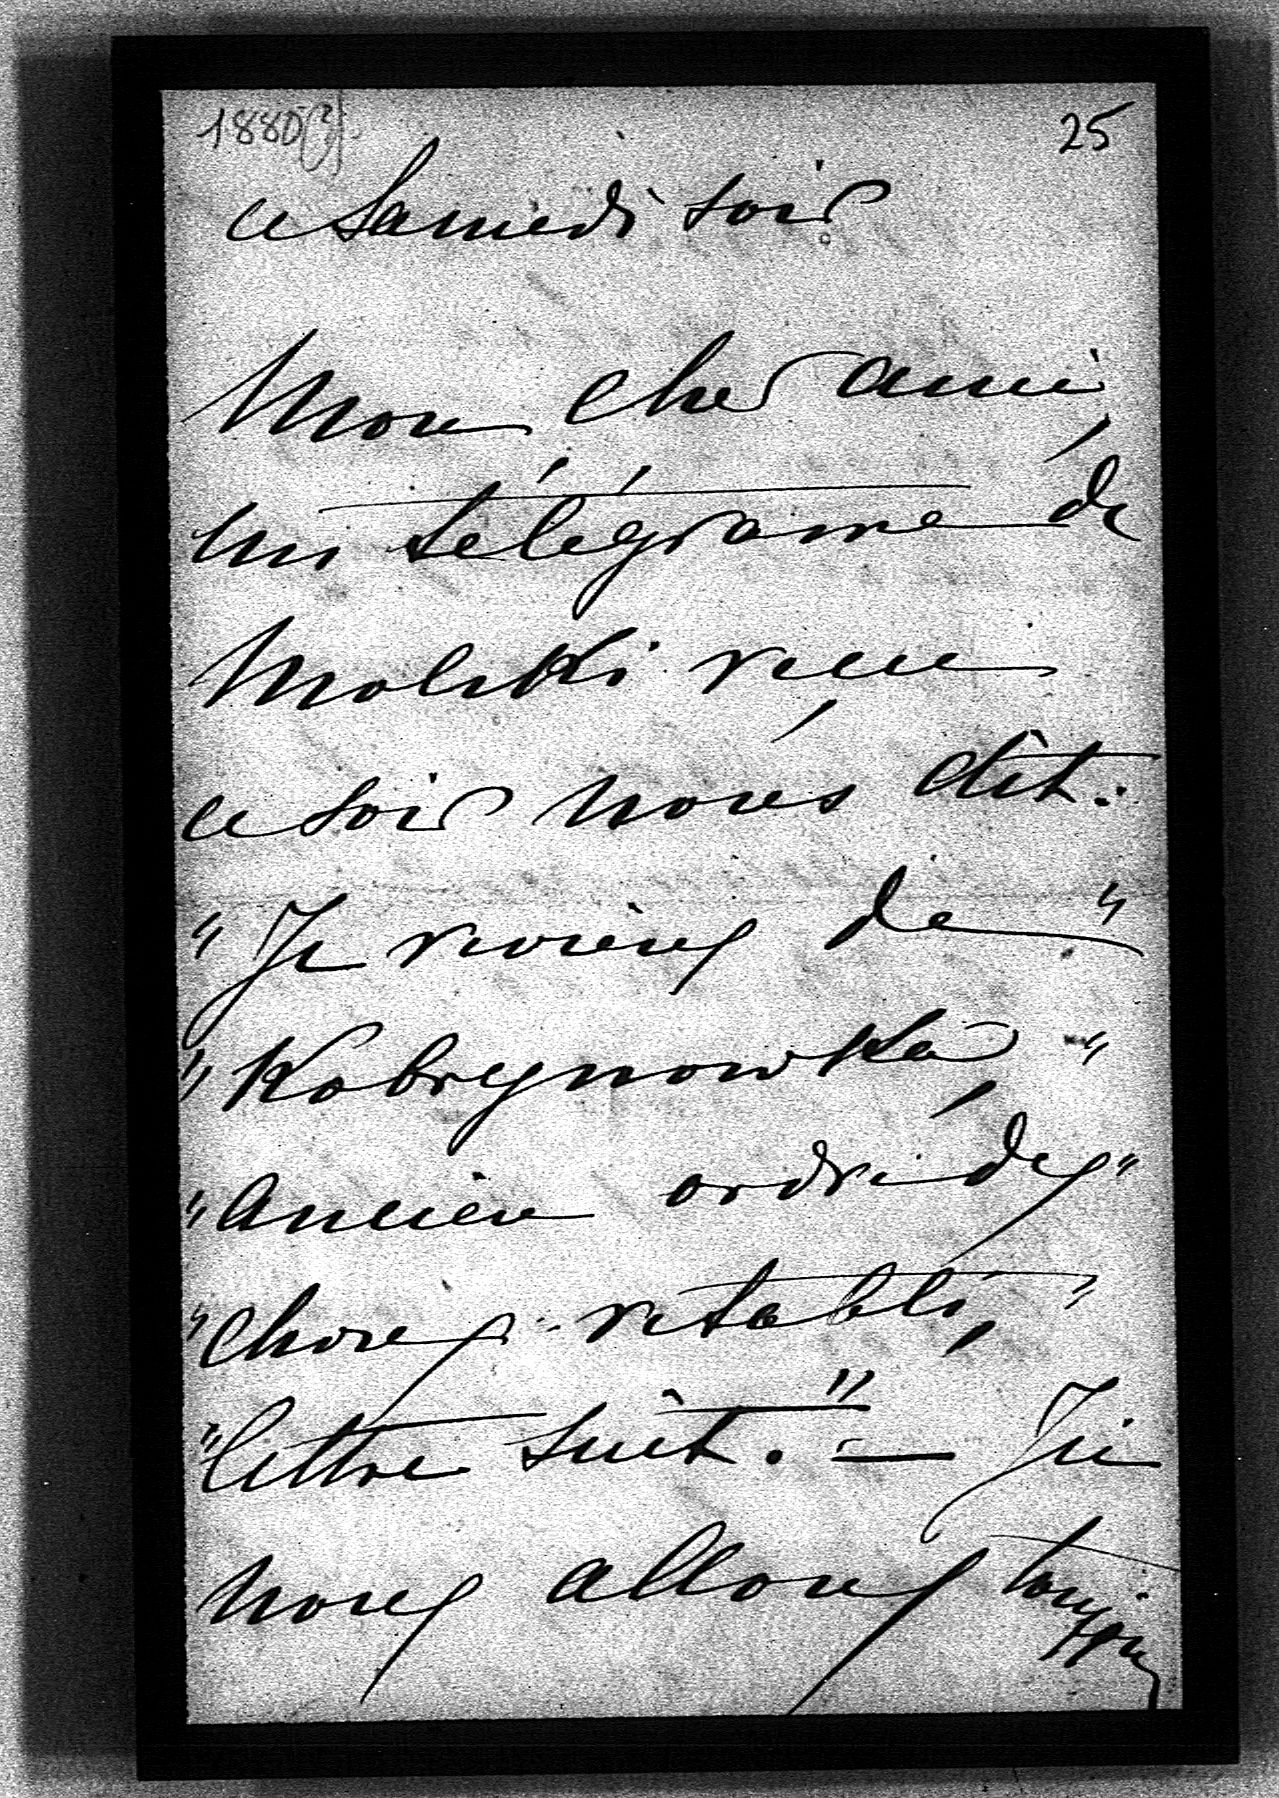 1880(?)
25
ce Samedi soir.
Mon cher ami,
un télégrame de
Molski reçu
ce soir nous dit:
"Je reviens de "
"Kobrynowka, "
"Ancien ordre des "
"choses rétabli, "
"lettre suit." — Ici
nous allons toujours